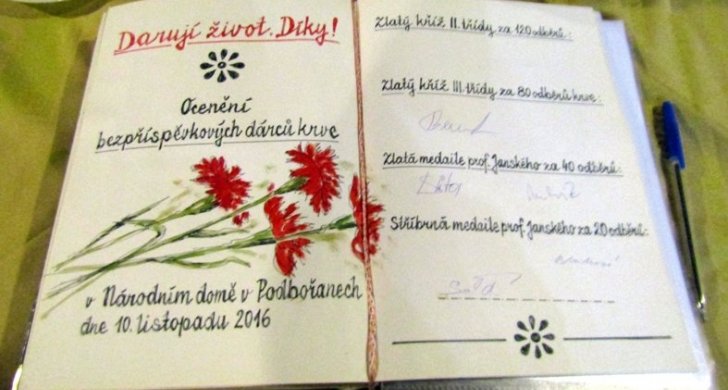 Darují život. Díky!
Ocenění
bezpříspěvkových dárců krve
v Národním domě v Podbořanech
dne 10. listopadu 2016
Zlatý kříž II. třídy za 120 odběrů:
Zlatý kříž III. třídy za 80 odběrů krve:
Zlatá medaile prof. Janského za 40 odběrů:
Stříbrná medaile prof. Janského za 20 odběrů: